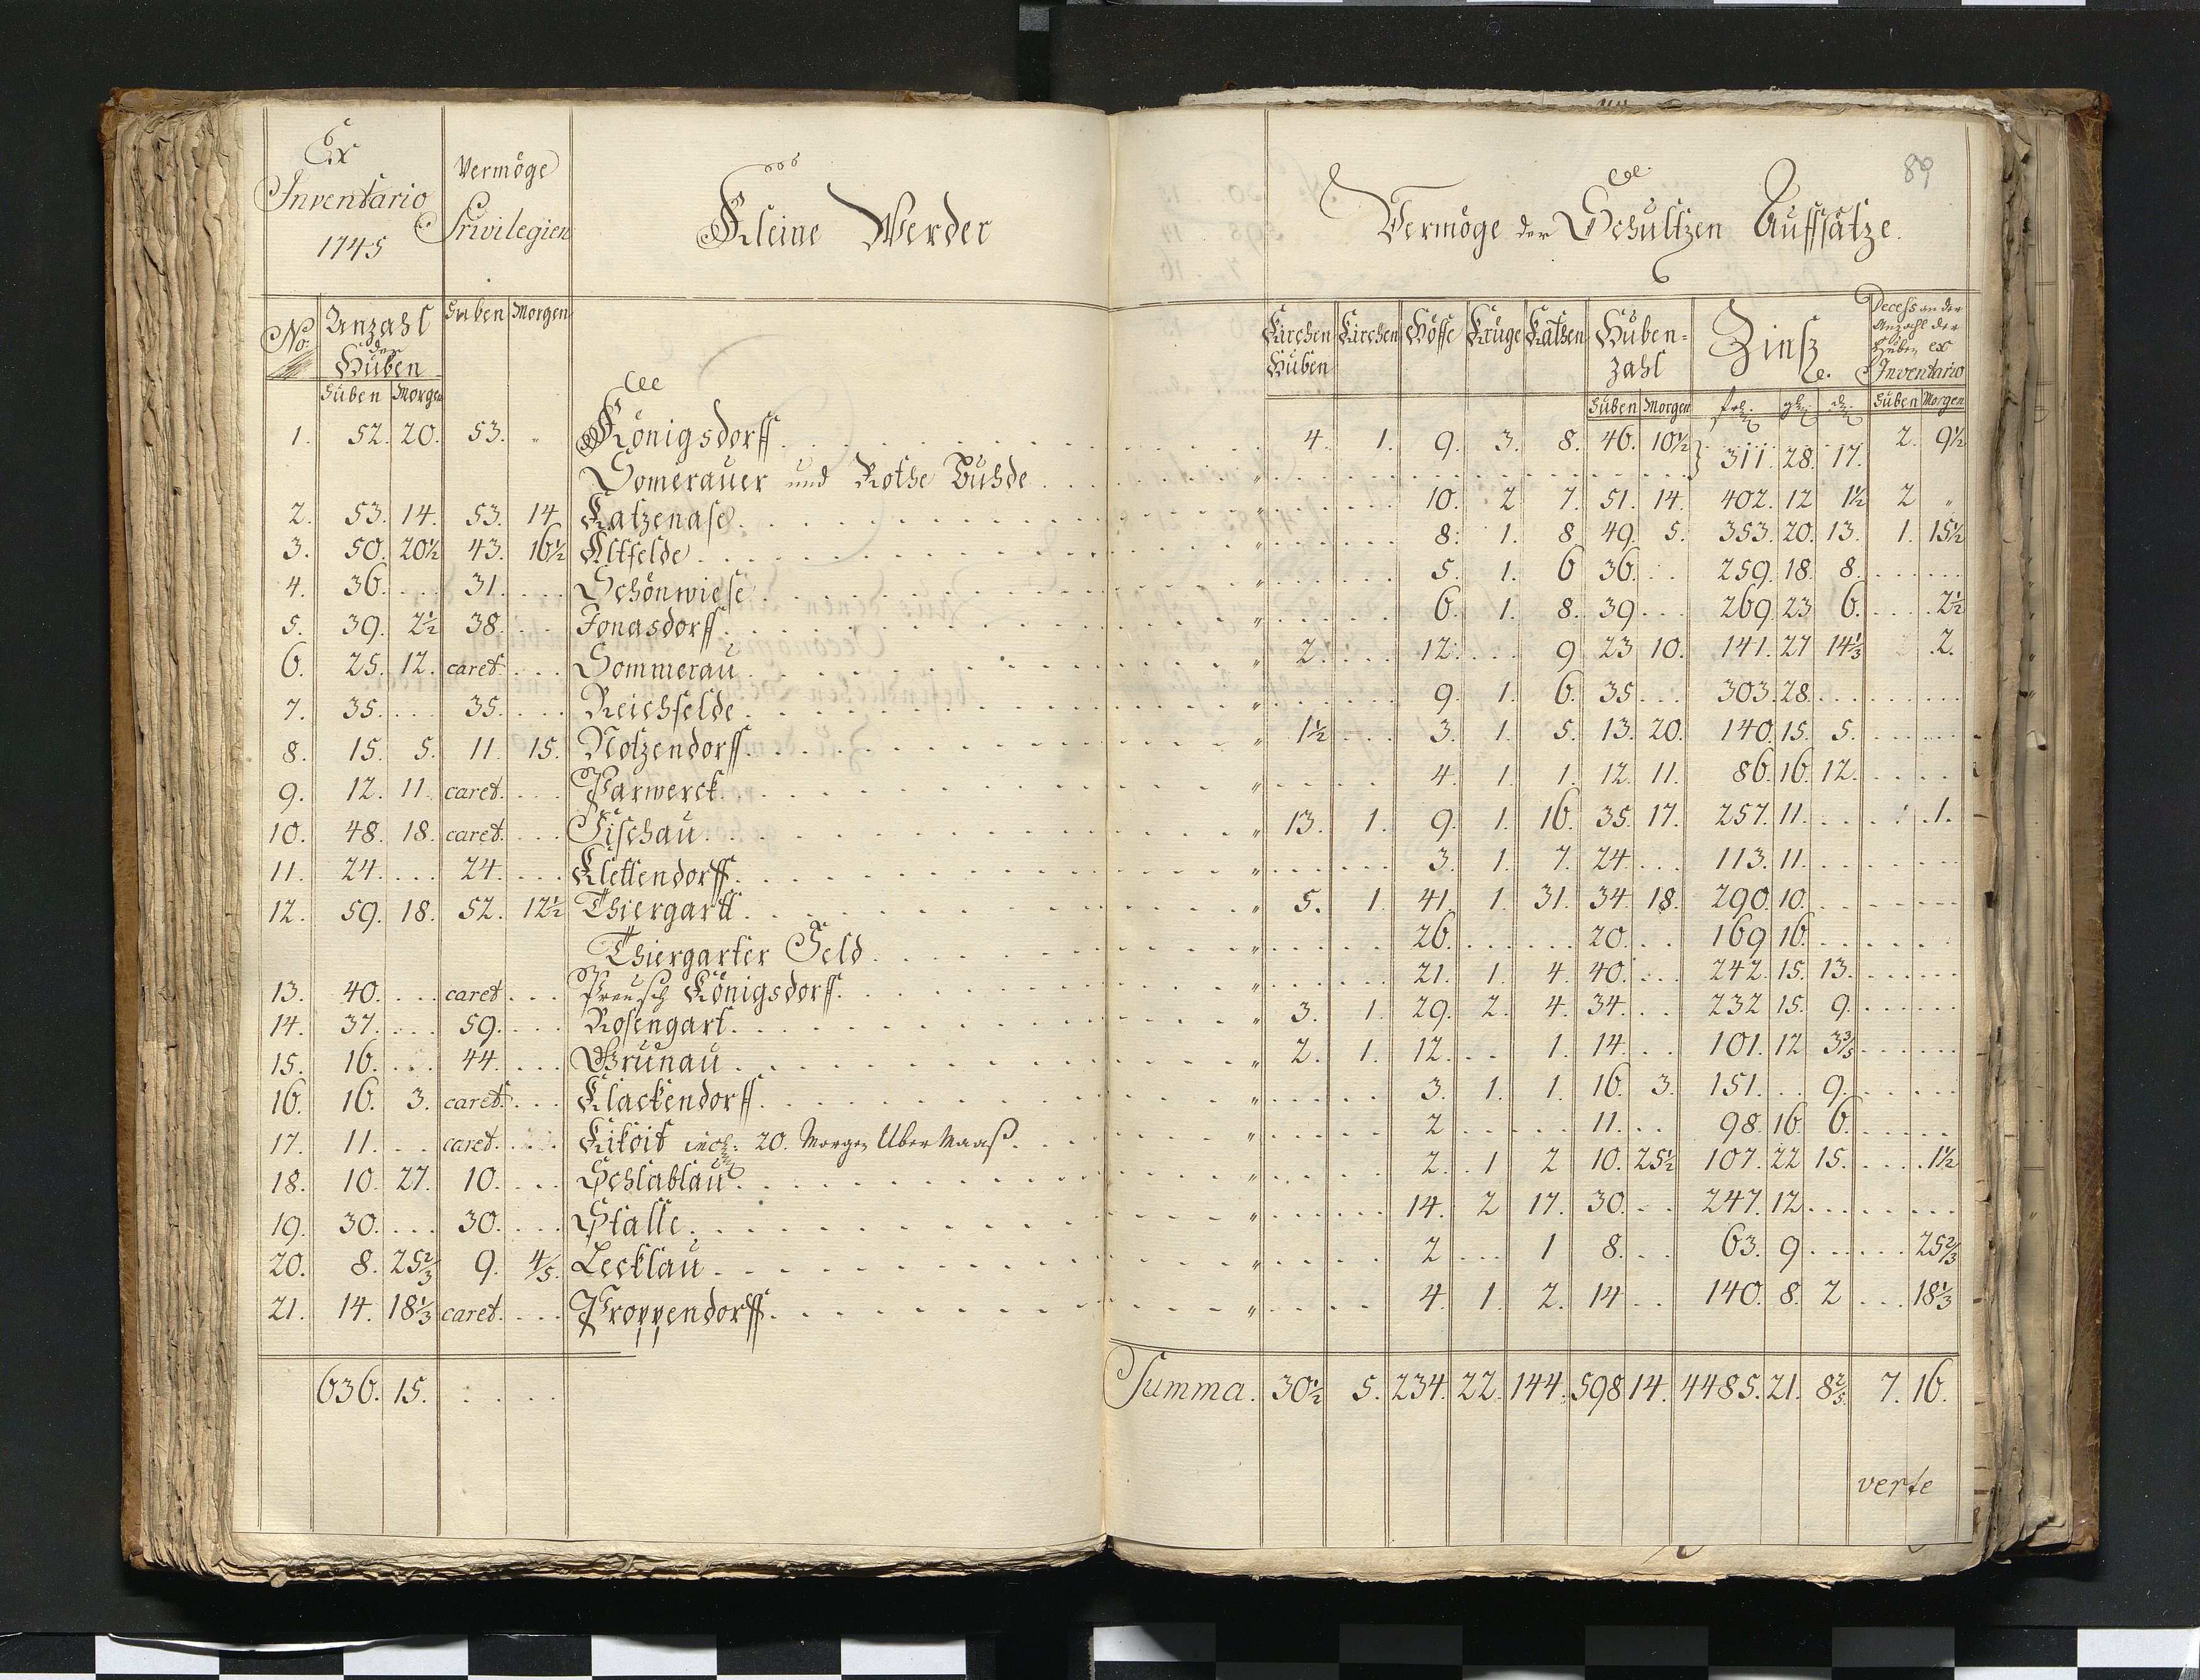 89
Ex Inventario 1745 | Vermöge Privilegien | Kleine Werder | Vermöge der Schultzen Auffsätze.
No. | Anzahl der Huben | Huben | Morgen | Kirchen Huben | Kirchen | Höffe | Krüge | Kathen | Huben-Zahl | Zinß | Decess an der Anzahl der Huben ex Inventario
Huben | Morgen | Huben | Morgen | Huben | Morgen
1. | 52. | 20. | 53. | „ | Königsdorff | 4. | 1. | 9. | 3. | 8. | 46. | 10½ | 311. | 28. | 17. | 2. | 9½
Somerauer und Rothe Buhde
2. | 53. | 14. | 53. | 14 | Katzenase | 10. | 2 | 7. | 51. | 14. | 402. | 12 | 1½ | 2 | „
3. | 50. | 20½ | 43. | 16½ | Altfelde | 8. | 1. | 8 | 49. | 5. | 353. | 20. | 13. | 1. | 15½
4. | 36. | 31. | Schönwiese | 5. | 1. | 6 | 36. | 259. | 18. | 8.
5. | 39. | 2½ | 38. | Jonasdorff | 6. | 1. | 8. | 39 | 269. | 23 | 6. | 2½
6. | 25. | 12. | caret. | Sommerau | 2. | 12. | 9 | 23 | 10. | 141. | 27 | 14⅓ | 2.
7. | 35. | 35. | Reichfelde | 9. | 1. | 6. | 35 | 303. | 28.
8. | 15. | 5. | 11. | 15. | Notzendorff | 1½ | 3. | 1. | 5. | 13. | 20. | 140. | 15. | 5.
9. | 12. | 11. | caret. | Parwerck | 4. | 1. | 1. | 12. | 11. | 86. | 16. | 12.
10. | 48. | 18. | caret. | Fischau | 13. | 1. | 9. | 1. | 16. | 35. | 17. | 257. | 11. | 1.
11. | 24. | 24. | Klettendorff | 3. | 1. | 7. | 24. | 113. | 11.
12. | 59. | 18. | 52. | 12½ | Thiergartt | 5. | 1. | 41. | 1. | 31. | 34. | 18. | 290. | 10.
Thiergarter Feld | 26. | 20. | 169 | 16.
13. | 40. | caret | Preusch Königsdorff | 21. | 1. | 4. | 40. | 242. | 15. | 13.
14. | 37. | 59. | Rosengart | 3. | 1. | 29. | 2. | 4. | 34. | 232 | 15. | 9.
15. | 16. | 44. | Grünau | 2. | 1. | 12. | 1. | 14. | 101. | 12 | 3⅗
16. | 16. | 3. | caret. | Klackendorff | 3. | 1. | 1. | 16. | 3. | 151. | 9.
17. | 11. | caret. | Kikoit incl: 20. Morgen Uber Maaß | 2 | 11. | 98. | 16. | 6.
18. | 10. | 27. | 10. | Schlablau | 2. | 1 | 2 | 10. | 25½ | 107. | 22 | 15. | 1½
19. | 30. | 30. | Stalle | 14. | 2 | 17. | 30. | 247. | 12.
20. | 8. | 25⅔ | 9. | ⅘. | Lecklau | 2 | 1 | 8. | 63. | 9. | 25⅔
21. | 14. | 18⅓ | caret. | Proppendorff | 4. | 1. | 2. | 14 | 140. | 8. | 2 | 18⅓
636. | 15. | Summa. | 30½ | 5. | 234. | 22. | 144. | 598 | 14. | 4485. | 21. | 8⅖ | 7. | 16.
verte